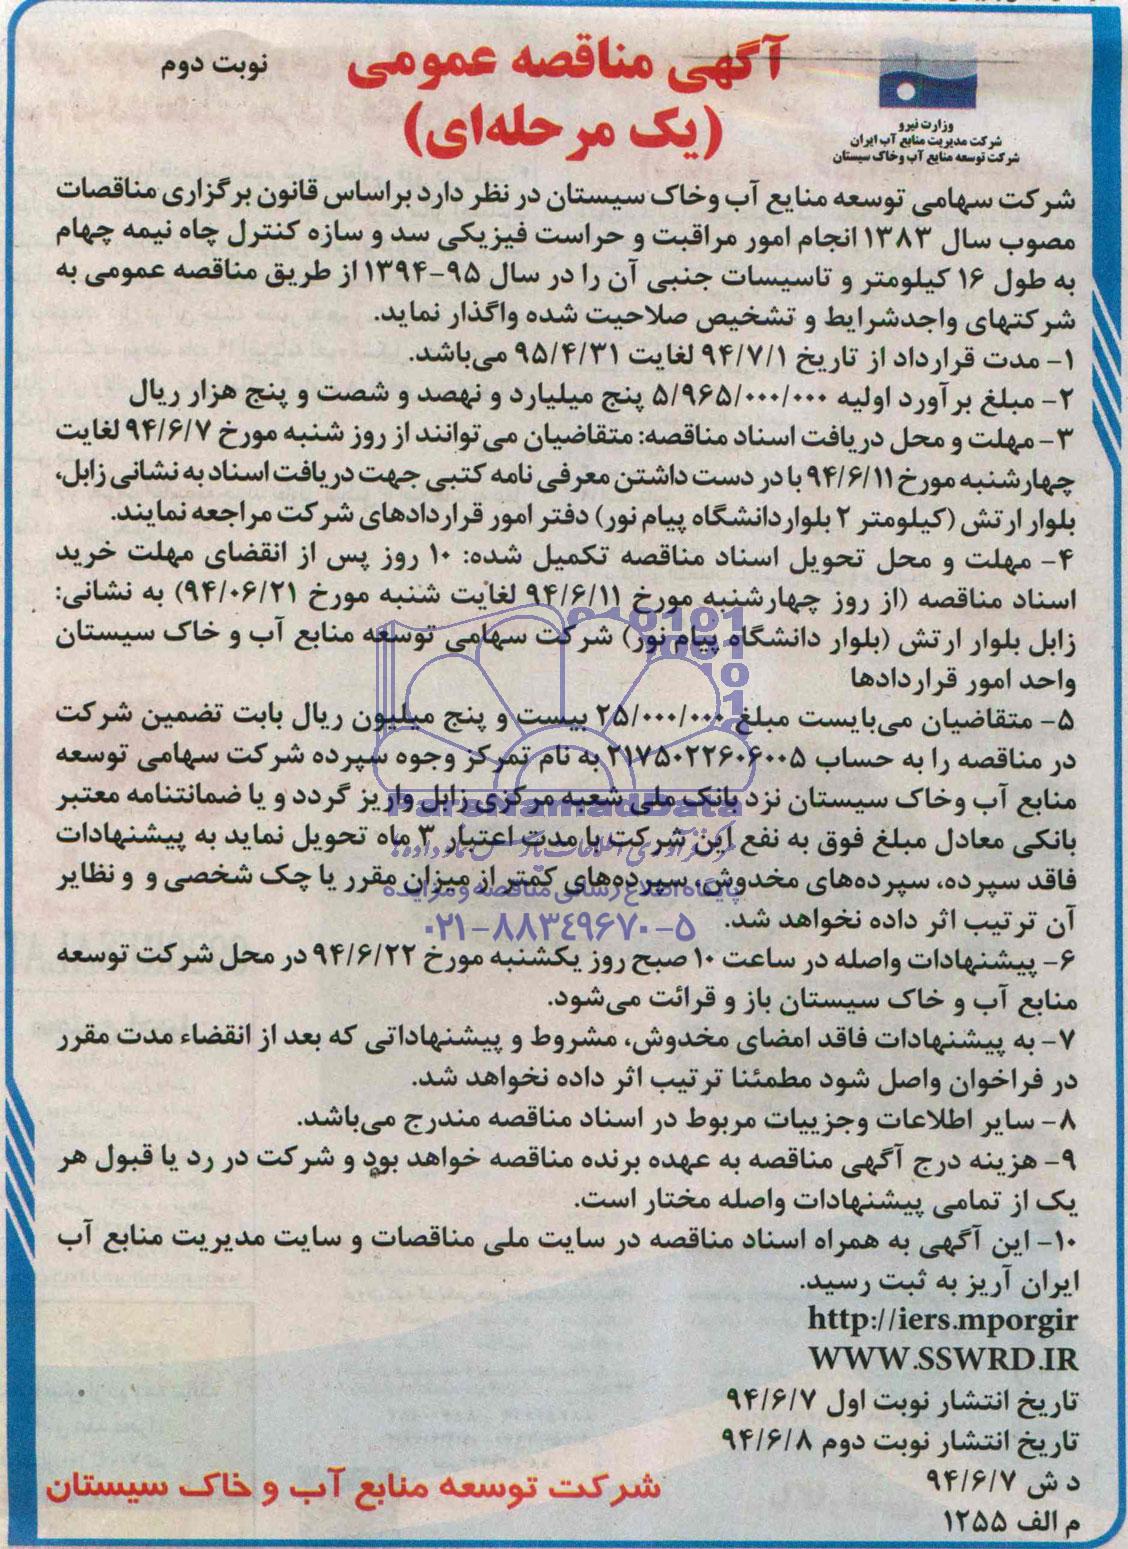 آگهی مناقصه عمومی
(یک مرحله‌ای)
نوبت دوم
وزارت نیرو
شرکت مدیریت منابع آب ایران
شرکت توسعه منابع آب وخاک سیستان
شرکت سهامی توسعه منابع آب وخاک سیستان در نظر دارد براساس قانون برگزاری مناقصات
مصوب سال ۱۳۸۳ انجام امور مراقبت و حراست فیزیکی سد و سازه کنترل چاه نیمه چهام
به طول ۱۶ کیلومتر و تاسیسات جنبی آن را در سال ۹۵-۱۳۹۴ از طریق مناقصه عمومی به
شرکتهای واجدشرایط و تشخیص صلاحیت شده واگذار نماید.
۱- مدت قرارداد از تاریخ ۹۴/۷/۱ لغایت ۹۵/۴/۳۱ می‌باشد.
۲- مبلغ برآورد اولیه ۵/۹۶۵/۰۰۰/۰۰۰ پنج میلیارد و نهصد و شصت و پنج هزار ریال
۳- مهلت و محل دریافت اسناد مناقصه: متقاضیان می‌توانند از روز شنبه مورخ ۹۴/۶/۷ لغایت
چهارشنبه مورخ ۹۴/۶/۱۱ با در دست داشتن معرفی نامه کتبی جهت دریافت اسناد به نشانی زابل،
بلوار ارتش (کیلومتر ۲ بلوار دانشگاه پیام نور) دفتر امور قراردادهای شرکت مراجعه نمایند.
۴- مهلت و محل تحویل اسناد مناقصه تکمیل شده: ۱۰ روز پس از انقضای مهلت خرید
اسناد مناقصه (از روز چهارشنبه مورخ ۹۴/۶/۱۱ لغایت شنبه مورخ ۹۴/۰۶/۲۱) به نشانی:
زابل بلوار ارتش (بلوار دانشگاه پیام نور) شرکت سهامی توسعه منابع آب و خاک سیستان
واحد امور قراردادها
۵- متقاضیان می‌بایست مبلغ ۲۵/۰۰۰/۰۰۰ بیست و پنج میلیون ریال بابت تضمین شرکت
در مناقصه را به حساب ۲۱۷۵۰۲۲۶۰۶۰۰۵ به نام تمرکز وجوه سپرده شرکت سهامی توسعه
منابع آب وخاک سیستان نزد بانک ملی شعبه مرکزی زابل واریز گردد و یا ضمانتنامه معتبر
بانکی معادل مبلغ فوق به نفع این شرکت با مدت اعتبار ۳ ماه تحویل نماید به پیشنهادات
فاقد سپرده، سپرده‌های مخدوش، سپرده‌های کمتر از میزان مقرر یا چک شخصی و و نظایر
آن ترتیب اثر داده نخواهد شد.
۶- پیشنهادات واصله در ساعت ۱۰ صبح روز یکشنبه مورخ ۹۴/۶/۲۲ در محل شرکت توسعه
منابع آب و خاک سیستان باز و قرائت می‌شود.
۷- به پیشنهادات فاقد امضای مخدوش، مشروط و پیشنهاداتی که بعد از انقضاء مدت مقرر
در فراخوان واصل شود مطمئنا ترتیب اثر داده نخواهد شد.
۸- سایر اطلاعات وجزییات مربوط در اسناد مناقصه مندرج می‌باشد.
۹- هزینه درج آگهی مناقصه به عهده برنده مناقصه خواهد بود و شرکت در رد یا قبول هر
یک از تمامی پیشنهادات واصله مختار است.
۱۰- این آگهی به همراه اسناد مناقصه در سایت ملی مناقصات و سایت مدیریت منابع آب
ایران آریز به ثبت رسید.
http://iers.mporgir
WWW.SSWRD.IR
تاریخ انتشار نوبت اول ۹۴/۶/۷
تاریخ انتشار نوبت دوم ۹۴/۶/۸
د ش ۹۴/۶/۷
م الف ۱۲۵۵
شرکت توسعه منابع آب و خاک سیستان
ParsNamadData
پایگاه اطلاع رسانی مناقصه و مزایده
۰۲۱-۸۸۳۴۹۶۷۰-۵